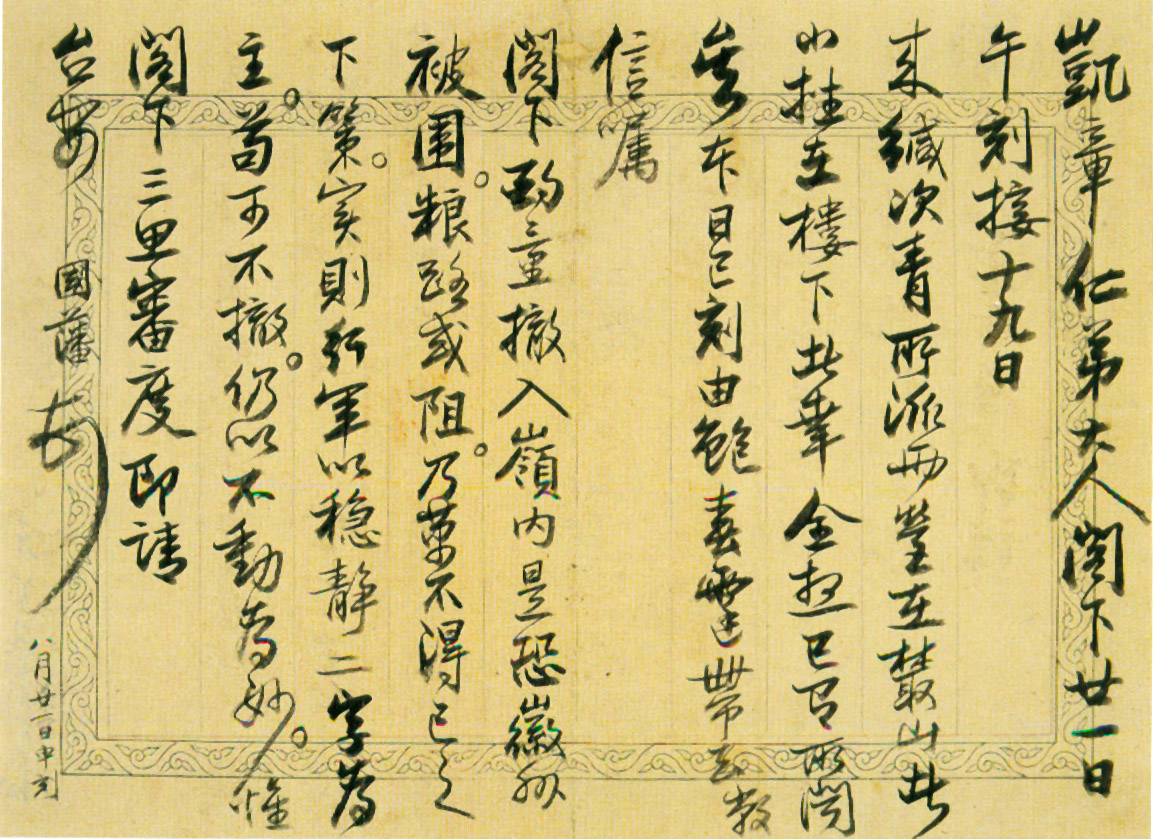 凱章仁弟大人閣下廿一日
午刻接十九日
來緘次青所派兩營在叢山者
小挫在樓下者幸全想已有所聞
矣本日巳刻由鮑春霆帶去數
信囑
閣下酌量撤入嶺內是恐徽州
被圍。粮路或阻。乃萬不得已之
下策。实則行軍以穩靜二字為
主。苟可不撤。仍以不動為妙。惟
閣下三思審度即請
台安 國藩頓
八月廿一日申刻